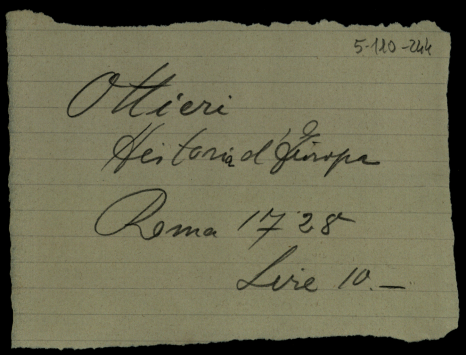 5-120-244
Ottieri
Historia d'Europa
Roma 1728
Lire 10.—